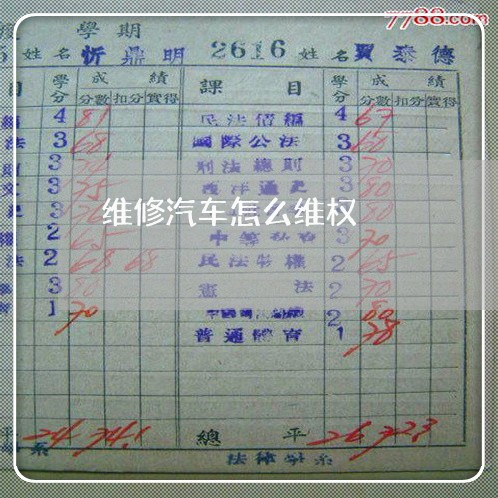 7788.com
學期
姓名 忻鼎明 2616 姓名 賈泰德
目 學分 成績 課目 學分 成績
分數 扣分 實得 分數 扣分 實得
4 81 民法債編 4 67
法 3 68 國際公法 3 60
3 刑法總則 3 70
3 75 西洋通史 3 80
維修汽車怎么维权
2 65 3 70
法 2 68 68 民法物權 2 65
3 80 憲法 2 70
1 70 2 80
普通體育 1 78
平 24 74.1 總平 26 72.3
系 法律學系